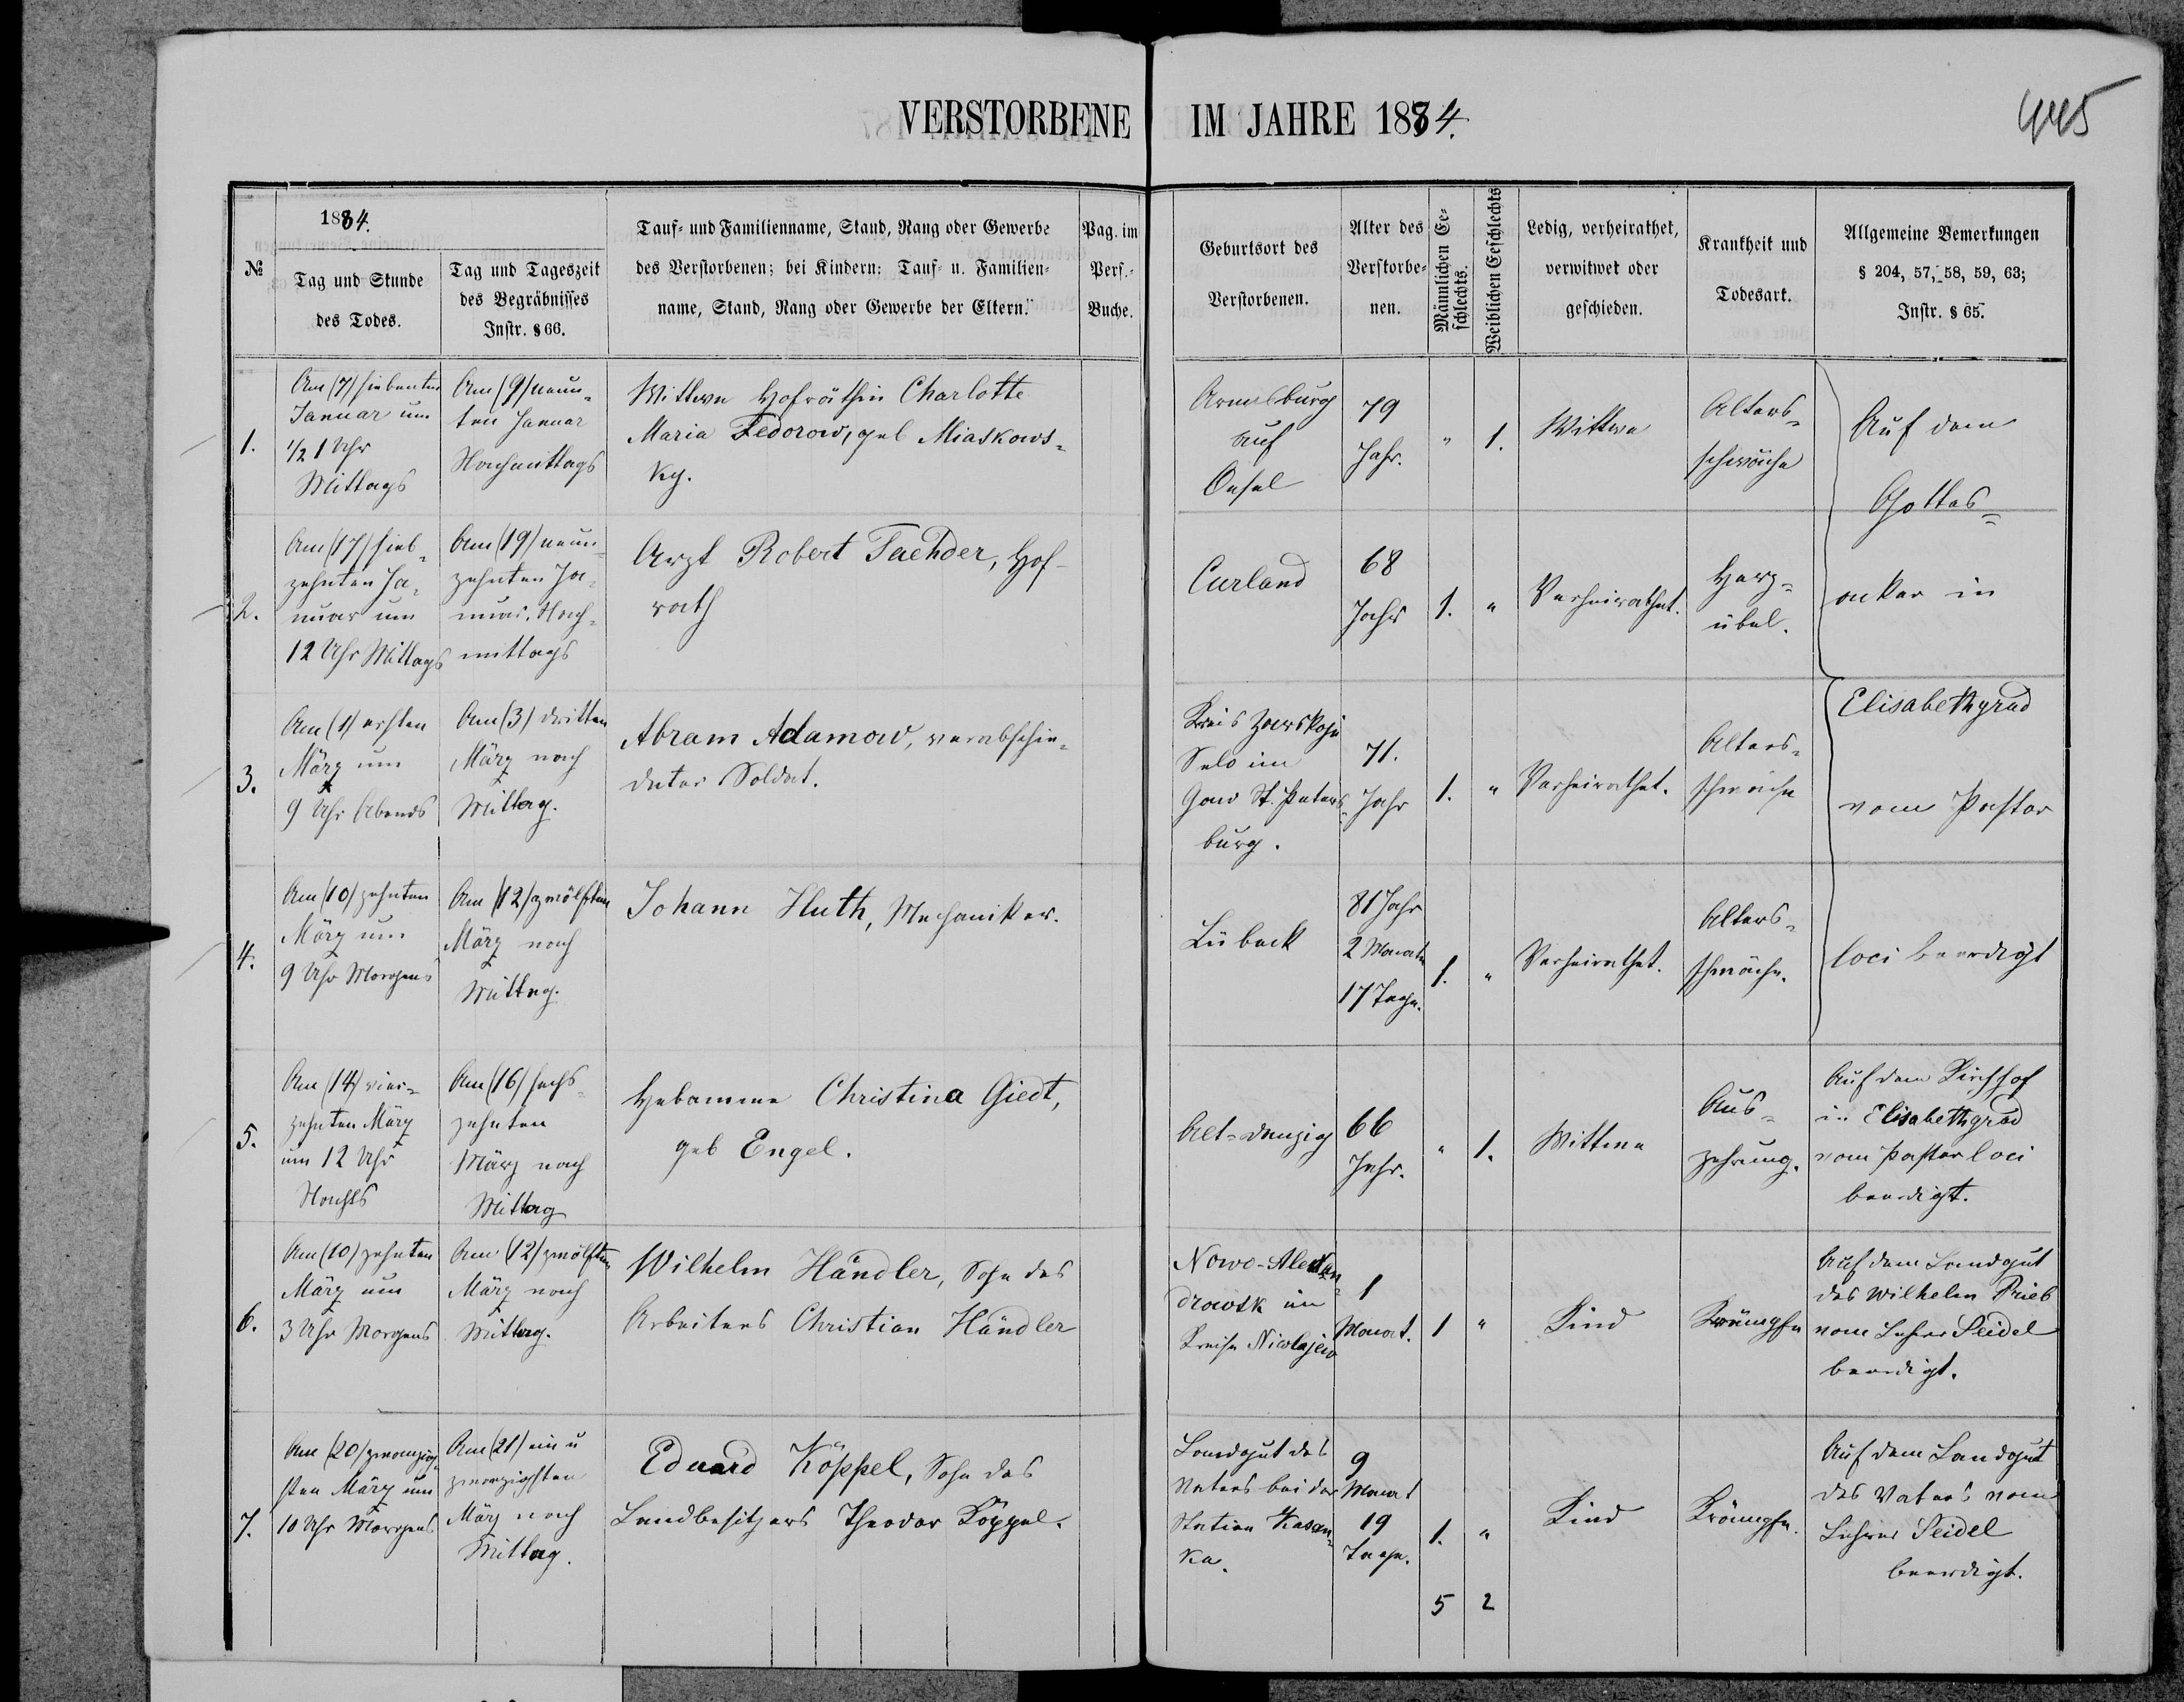 VERSTORBENE IM JAHRE 1884.
445
№
1884.
Tag und Stunde
des Todes.
Tag und Tageszeit
des Begräbnisses
Instr. § 66.
Tauf- und Familienname, Stand, Rang oder Gewerbe
des Verstorbenen; bei Kindern: Tauf- u. Familien-
name, Stand, Rang oder Gewerbe der Eltern.
Pag. im
Pers.-
Buche.
Geburtsort des
Verstorbenen.
Alter des
Verstorbe-
nen.
Männlichen Ge-
schlechts.
Weiblichen Geschlechts
Ledig, verheirathet,
verwitwet oder
geschieden.
Krankheit und
Todesart.
Allgemeine Bemerkungen
§ 204, 57, 58, 59, 63;
Instr. § 65.
1.
Am (7) siebenten
Januar um
1/2 1 Uhr
Mittags
Am (9) neun-
ten Januar
Nachmittags
Wittwe Hofräthin Charlotte
Maria Fedorow, geb Miaskows-
ky.
Arensburg
auf
Oesel
79
Jahr.
"
1.
Wittwe
Alters-
schwäche
Auf dem
Gottes-
acker in
Elisabethgrad
vom Pastor
loci beerdigt
2.
Am (17) sieb-
zehnten Ja-
nuar um
12 Uhr Mittags
Am (19) neun-
zehnten Ja-
nuar. Nach-
mittags
Arzt Robert Faehder, Hof-
rath
Curland
68
Jahr
1.
"
Verheirathet.
Herz-
übel.
3.
Am (1) ersten
März um
9 Uhr Abends
Am (3) dritten
März nach
Mittag.
Abram Adamow, verabschie-
deter Soldat.
Kreis Zarskoje
Selo im
Gouv St. Peters-
burg.
71.
Jahr
1.
"
Verheirathet.
Alters-
schwäche
4.
Am (10) zehnten
März um
9 Uhr Morgens
Am (12) zwölften
März nach
Mittag.
Johann Huth, Mechaniker.
Lübeck
81 Jahr
2 Monate
17 Tage.
1.
"
Verheirathet.
Alters-
schwäche.
5.
Am (14) vier-
zehnten März
um 12 Uhr
Nachts
Am (16) sechs-
zehnten
März nach
Mittag
Hebamme Christina Giedt,
geb Engel.
Alt-Danzig
66
Jahr.
"
1.
Wittwe
Aus-
zehrung.
Auf dem Kirchhof
in Elisabethgrad
vom Pastor loci
beerdigt.
6.
Am (10) zehnten
März um
3 Uhr Morgens
Am (12) zwölften
März nach
Mittag.
Wilhelm Händler, Sohn des
Arbeiters Christian Händler
Nowo-Alexan-
drowsk im
Kreise Nicolajew
1
Monat.
1
"
Kind
Krämpfe
Auf dem Landgut
des Wilhelm Prieb
vom Lehrer Seidel
beerdigt.
7.
Am (20) zwanzig-
sten März um
10 Uhr Morgens
Am (21) ein u
zwanzigsten
März nach
Mittag.
Eduard Köppel, Sohn des
Landbesitzers Theodor Köppel.
Landgut des
Vaters bei der
Station Kasan-
ka.
9
Monat
19
Tage.
1.
"
Kind
Krämpfe.
Auf dem Landgut
des Vaters vom
Lehrer Seidel
beerdigt.
5
2